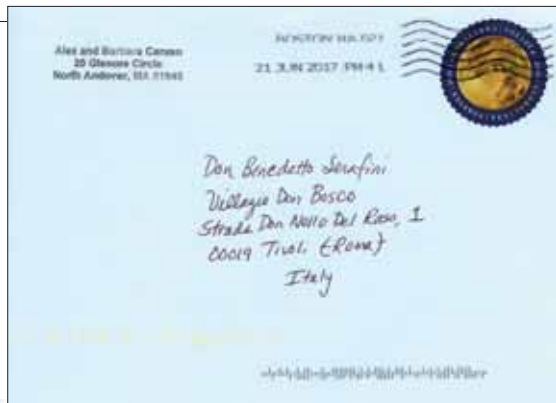 Alex and Barbara Caruso
20 Glenore Circle
North Andover, MA 01845
BOSTON MA 021
21 JUN 2017 PM 4 L
Don Benedetto Serafini
Villagio Don Bosco
Strada Don Nello Del Raso, 1
00019 Tivoli (Roma)
Italy